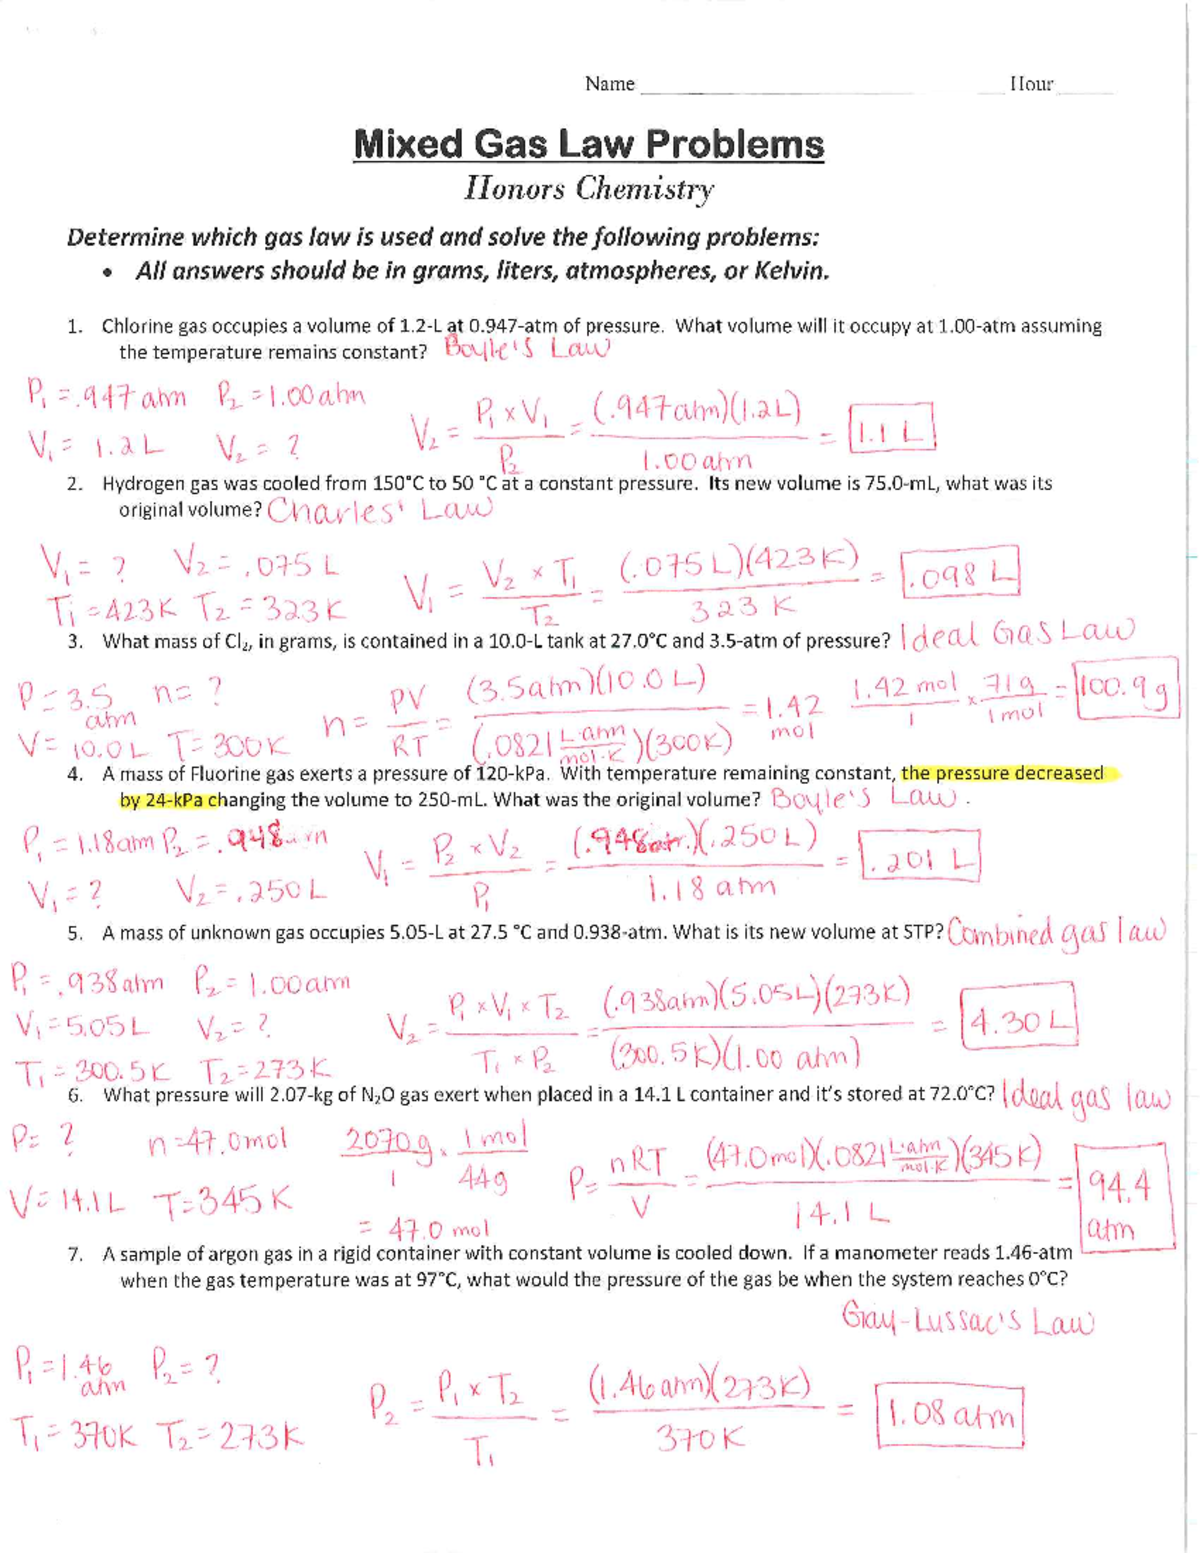 Name ____________ Hour ______
Mixed Gas Law Problems
Honors Chemistry
Determine which gas law is used and solve the following problems:
• All answers should be in grams, liters, atmospheres, or Kelvin.
1. Chlorine gas occupies a volume of 1.2-L at 0.947-atm of pressure. What volume will it occupy at 1.00-atm assuming
the temperature remains constant? Boyle's Law
P₁ = .947 atm P₂ = 1.00 atm
V₁ = 1.2 L V₂ = ?
V₂ = P₁ × V₁ / P₂ = (.947 atm)(1.2 L) / 1.00 atm = 1.1 L
2. Hydrogen gas was cooled from 150°C to 50 °C at a constant pressure. Its new volume is 75.0-mL, what was its
original volume? Charles' Law
V₁ = ? V₂ = .075 L
T₁ = 423K T₂ = 323K
V₁ = V₂ × T₁ / T₂ = (.075 L)(423K) / 323 K = .098 L
3. What mass of Cl₂, in grams, is contained in a 10.0-L tank at 27.0°C and 3.5-atm of pressure? Ideal Gas Law
P = 3.5 atm n = ?
V = 10.0 L T = 300K
n = PV / RT = (3.5 atm)(10.0 L) / (.0821 L·atm / mol·K)(300K) = 1.42 mol
1.42 mol / 1 × 71g / 1 mol = 100.9 g
4. A mass of Fluorine gas exerts a pressure of 120-kPa. With temperature remaining constant, the pressure decreased
by 24-kPa changing the volume to 250-mL. What was the original volume? Boyle's Law.
P₁ = 1.18 atm P₂ = .948 atm
V₁ = ? V₂ = .250 L
V₁ = P₂ × V₂ / P₁ = (.948 atm)(.250 L) / 1.18 atm = .201 L
5. A mass of unknown gas occupies 5.05-L at 27.5 °C and 0.938-atm. What is its new volume at STP? Combined gas law
P₁ = .938 atm P₂ = 1.00 atm
V₁ = 5.05 L V₂ = ?
T₁ = 300.5 K T₂ = 273 K
V₂ = P₁ × V₁ × T₂ / T₁ × P₂ = (.938 atm)(5.05 L)(273K) / (300.5 K)(1.00 atm) = 4.30 L
6. What pressure will 2.07-kg of N₂O gas exert when placed in a 14.1 L container and it's stored at 72.0°C? Ideal gas law
P = ? n = 47.0 mol
V = 14.1 L T = 345 K
2070g / 1 · 1 mol / 44g = 47.0 mol
P = nRT / V = (47.0 mol)(.0821 L·atm / mol·K)(345 K) / 14.1 L = 94.4 atm
7. A sample of argon gas in a rigid container with constant volume is cooled down. If a manometer reads 1.46-atm
when the gas temperature was at 97°C, what would the pressure of the gas be when the system reaches 0°C?
Gay-Lussac's Law
P₁ = 1.46 atm P₂ = ?
T₁ = 370K T₂ = 273K
P₂ = P₁ × T₂ / T₁ = (1.46 atm)(273K) / 370K = 1.08 atm